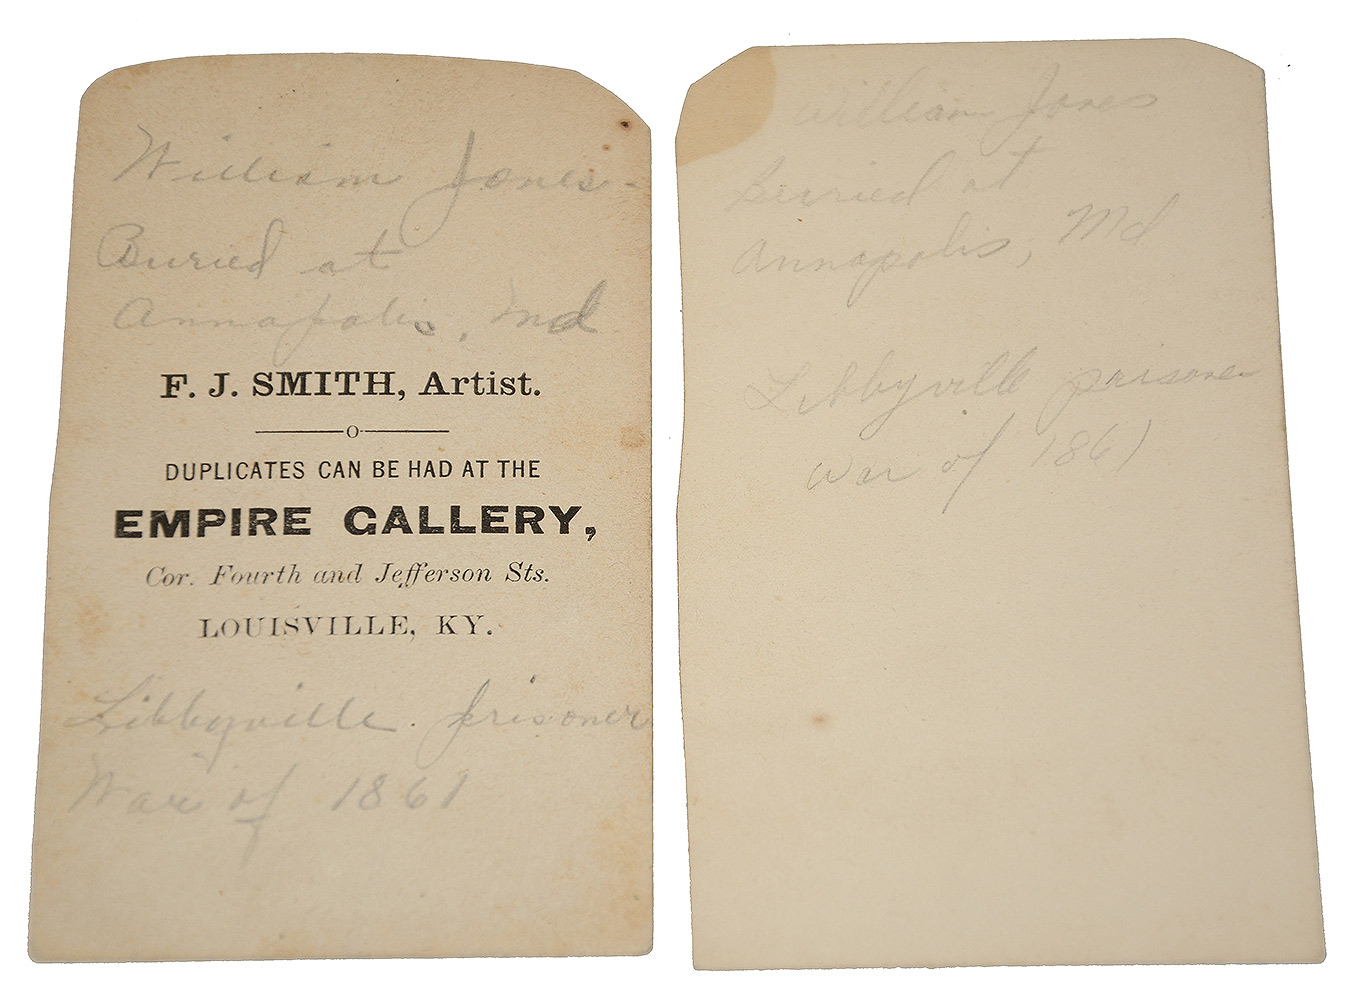 William Jones -
Buried at
Annapolis, Md
F. J. SMITH, Artist.
O
DUPLICATES CAN BE HAD AT THE
EMPIRE GALLERY,
Cor. Fourth and Jefferson Sts.
LOUISVILLE, KY.
Libbyville. prisoner
War of 1861
William Jones
Burried at
Annapolis, Md
Libbyville prisoner
War of 1861